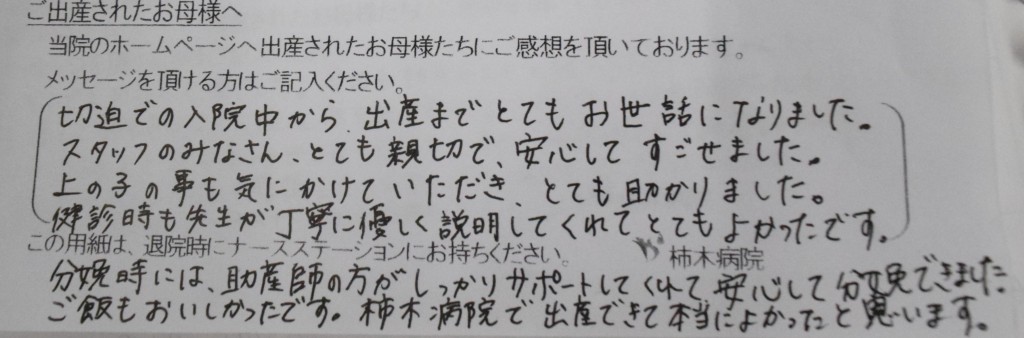 ご出産されたお母様へ
当院のホームページへ出産されたお母様たちにご感想を頂いております。
メッセージを頂ける方はご記入ください。
切迫での入院中から、出産までとてもお世話になりました。
スタッフのみなさん、とても親切で、安心してすごせました。
上の子の事も気にかけていただき、とても助かりました。
健診時も先生が丁寧に優しく説明してくれてとてもよかったです。
この用細は、退院時にナースステーションにお持ちください。 柿木病院
分娩時には、助産師の方がしっかりサポートしてくれて、安心して分娩できました
ご飯もおいしかったです。柿木病院で出産できて本当によかったと思います。